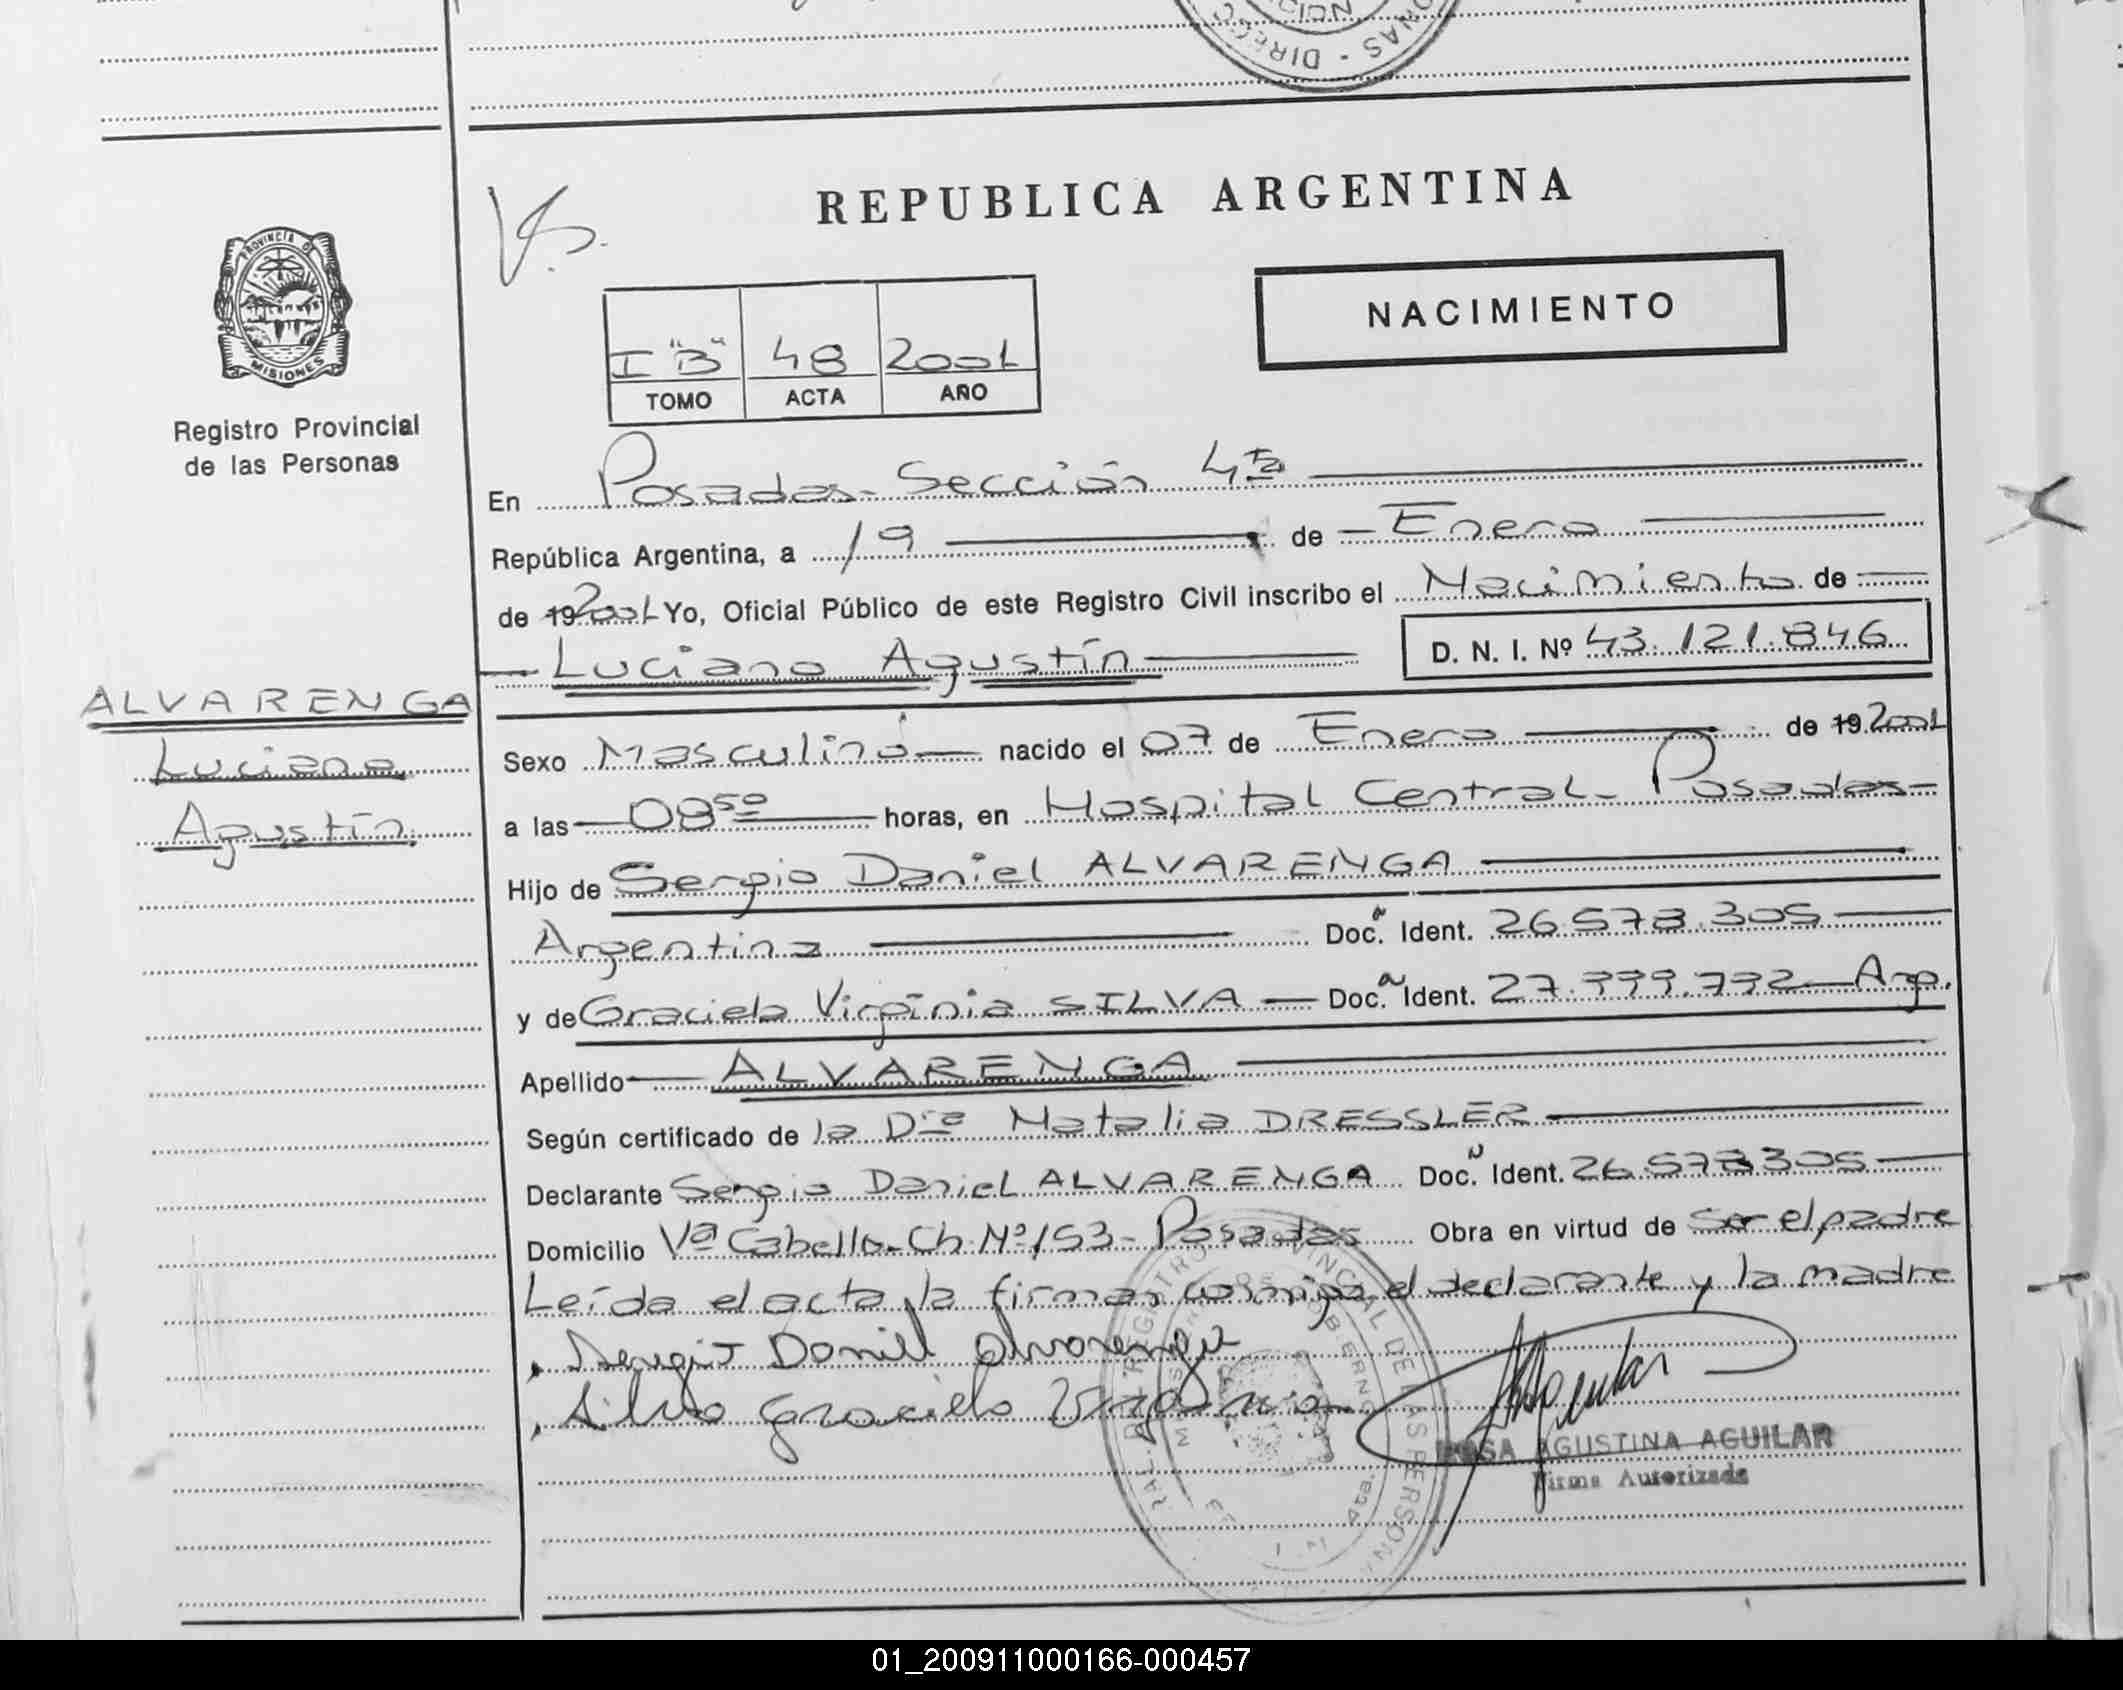 CION
DIRECC
REPUBLICA ARGENTINA
PROVINCIA DE
MISIONES
Registro Provincial
de las Personas
NACIMIENTO
I "B" 48 2001
TOMO ACTA AÑO
En Posadas - Sección 4ta
República Argentina, a 19 de Enero
de 19 2001 Yo, Oficial Público de este Registro Civil inscribo el Nacimiento de
Luciano Agustín D. N. I. Nº 43.121.846
ALVARENGA
Luciano
Agustín
Sexo Masculino nacido el 07 de Enero de 19 2001
a las 08 50 horas, en Hospital Central - Posadas
Hijo de Sergio Daniel ALVARENGA
Argentina Doc. Ident. 26.578.305
y de Graciela Virginia SILVA Doc. Ident. Arg.
Apellido ALVARENGA
Según certificado de la Dra Natalia DRESSLER
Declarante Sergio Daniel ALVARENGA Doc. Ident. 26.578305
Domicilio Vª Cabello - Ch. Nº 153 - Posadas Obra en virtud de ser el padre
Leída el acta la firman conmigo el declarante y la madre
Sergio Daniel Alvarenga
Silva Graciela Virginia
ROSA AGUSTINA AGUILAR
Firma Autorizada
01_200911000166-000457